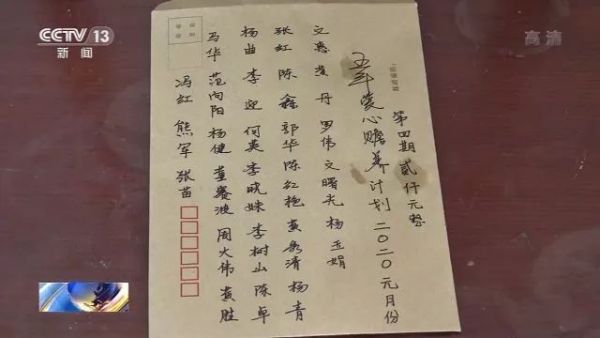 CCTV 13
新闻
高清
第四期 贰仟元整
五年爱心赡养计划 二〇二〇元月份
黄丹 罗伟 文曙光 杨玉娟
张红 陈鑫 郭华 陈红艳 黄秀清 杨青
杨曲 李迎 何英 李晓姝 李树山 陈卓
马华 范向阳 杨健 董赛波 周大伟 黄胜
冯红 熊军 张苗